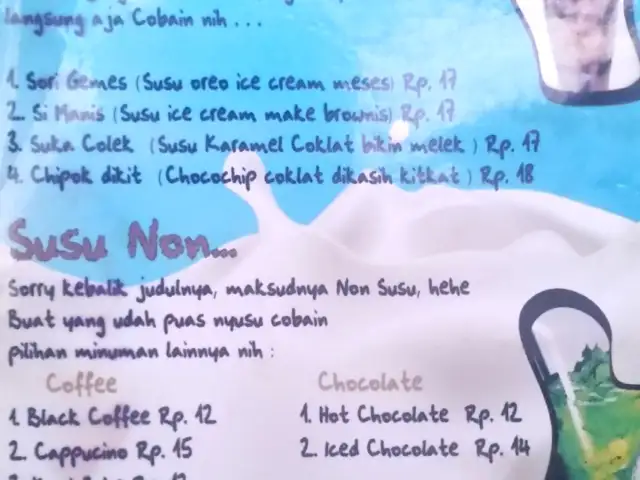 langsung aja Cobain nih...
1. Sori Gemes (Susu oreo ice cream meses) Rp. 17
2. Si Manis (Susu ice cream make brownis) Rp. 17
3. Suka Colek (Susu Karamel Coklat bikin melek) Rp. 17
4. Chipok dikit (Chocochip coklat dikasih kitkat) Rp. 18
Susu Non...
Sorry kebalik judulnya, maksudnya Non Susu, hehe
Buat yang udah puas nyusu cobain
pilihan minuman lainnya nih :
Coffee
1. Black Coffee Rp. 12
2. Cappucino Rp. 15
Chocolate
1. Hot Chocolate Rp. 12
2. Iced Chocolate Rp. 14